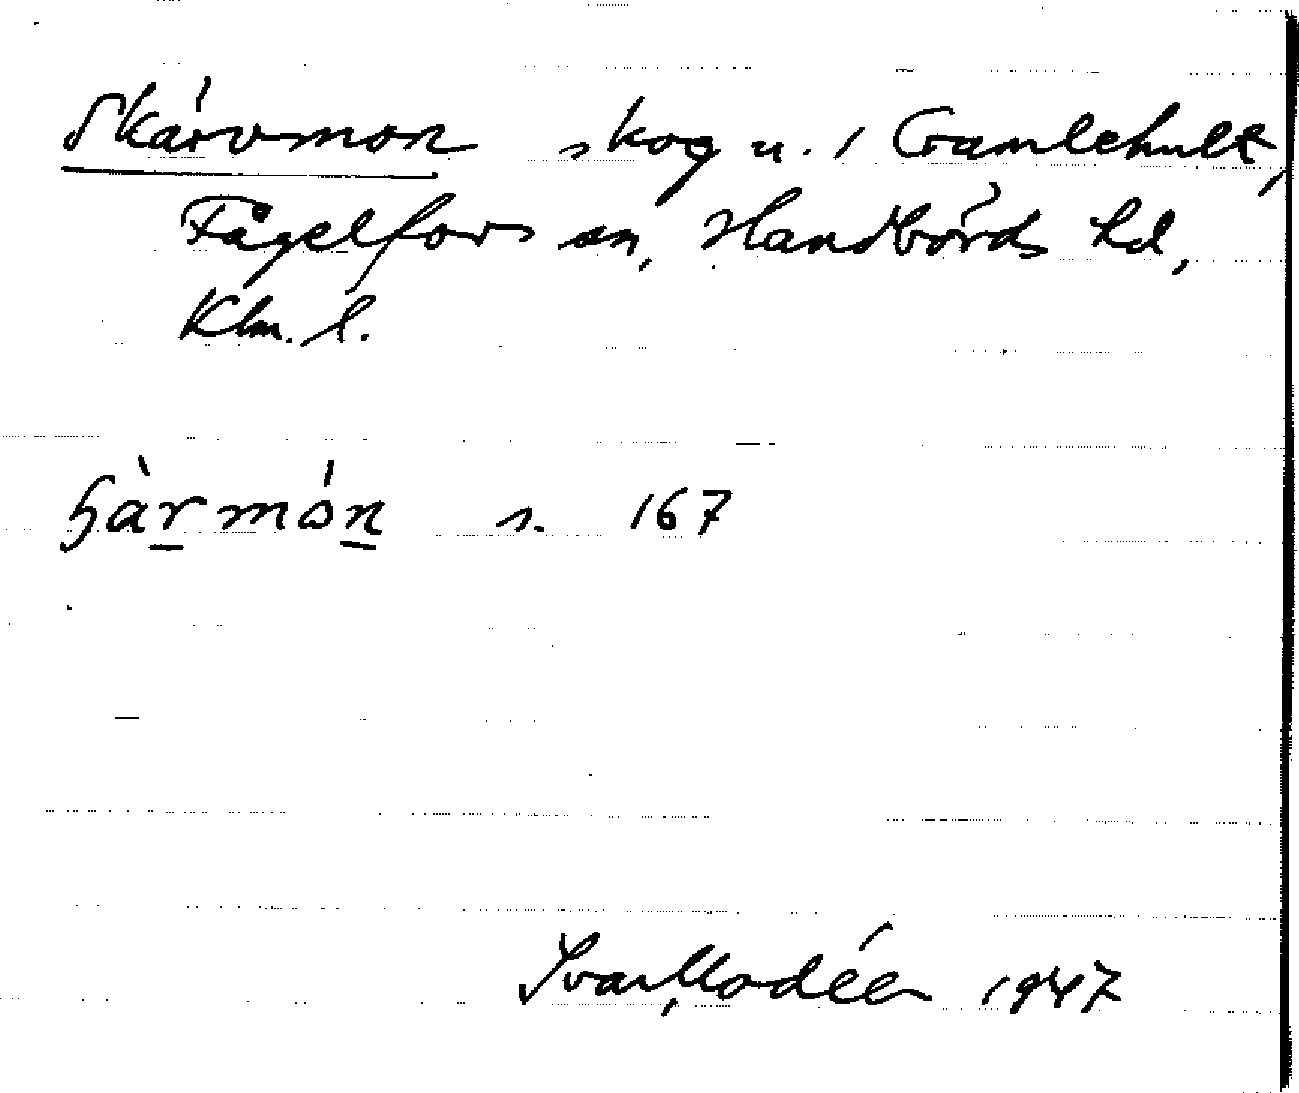 Skärvmon skog u. / Gamlehult,
Fågelfors sn, Handbörds hd,
Klm. l.
s. 167
Ivar Modéer 1947